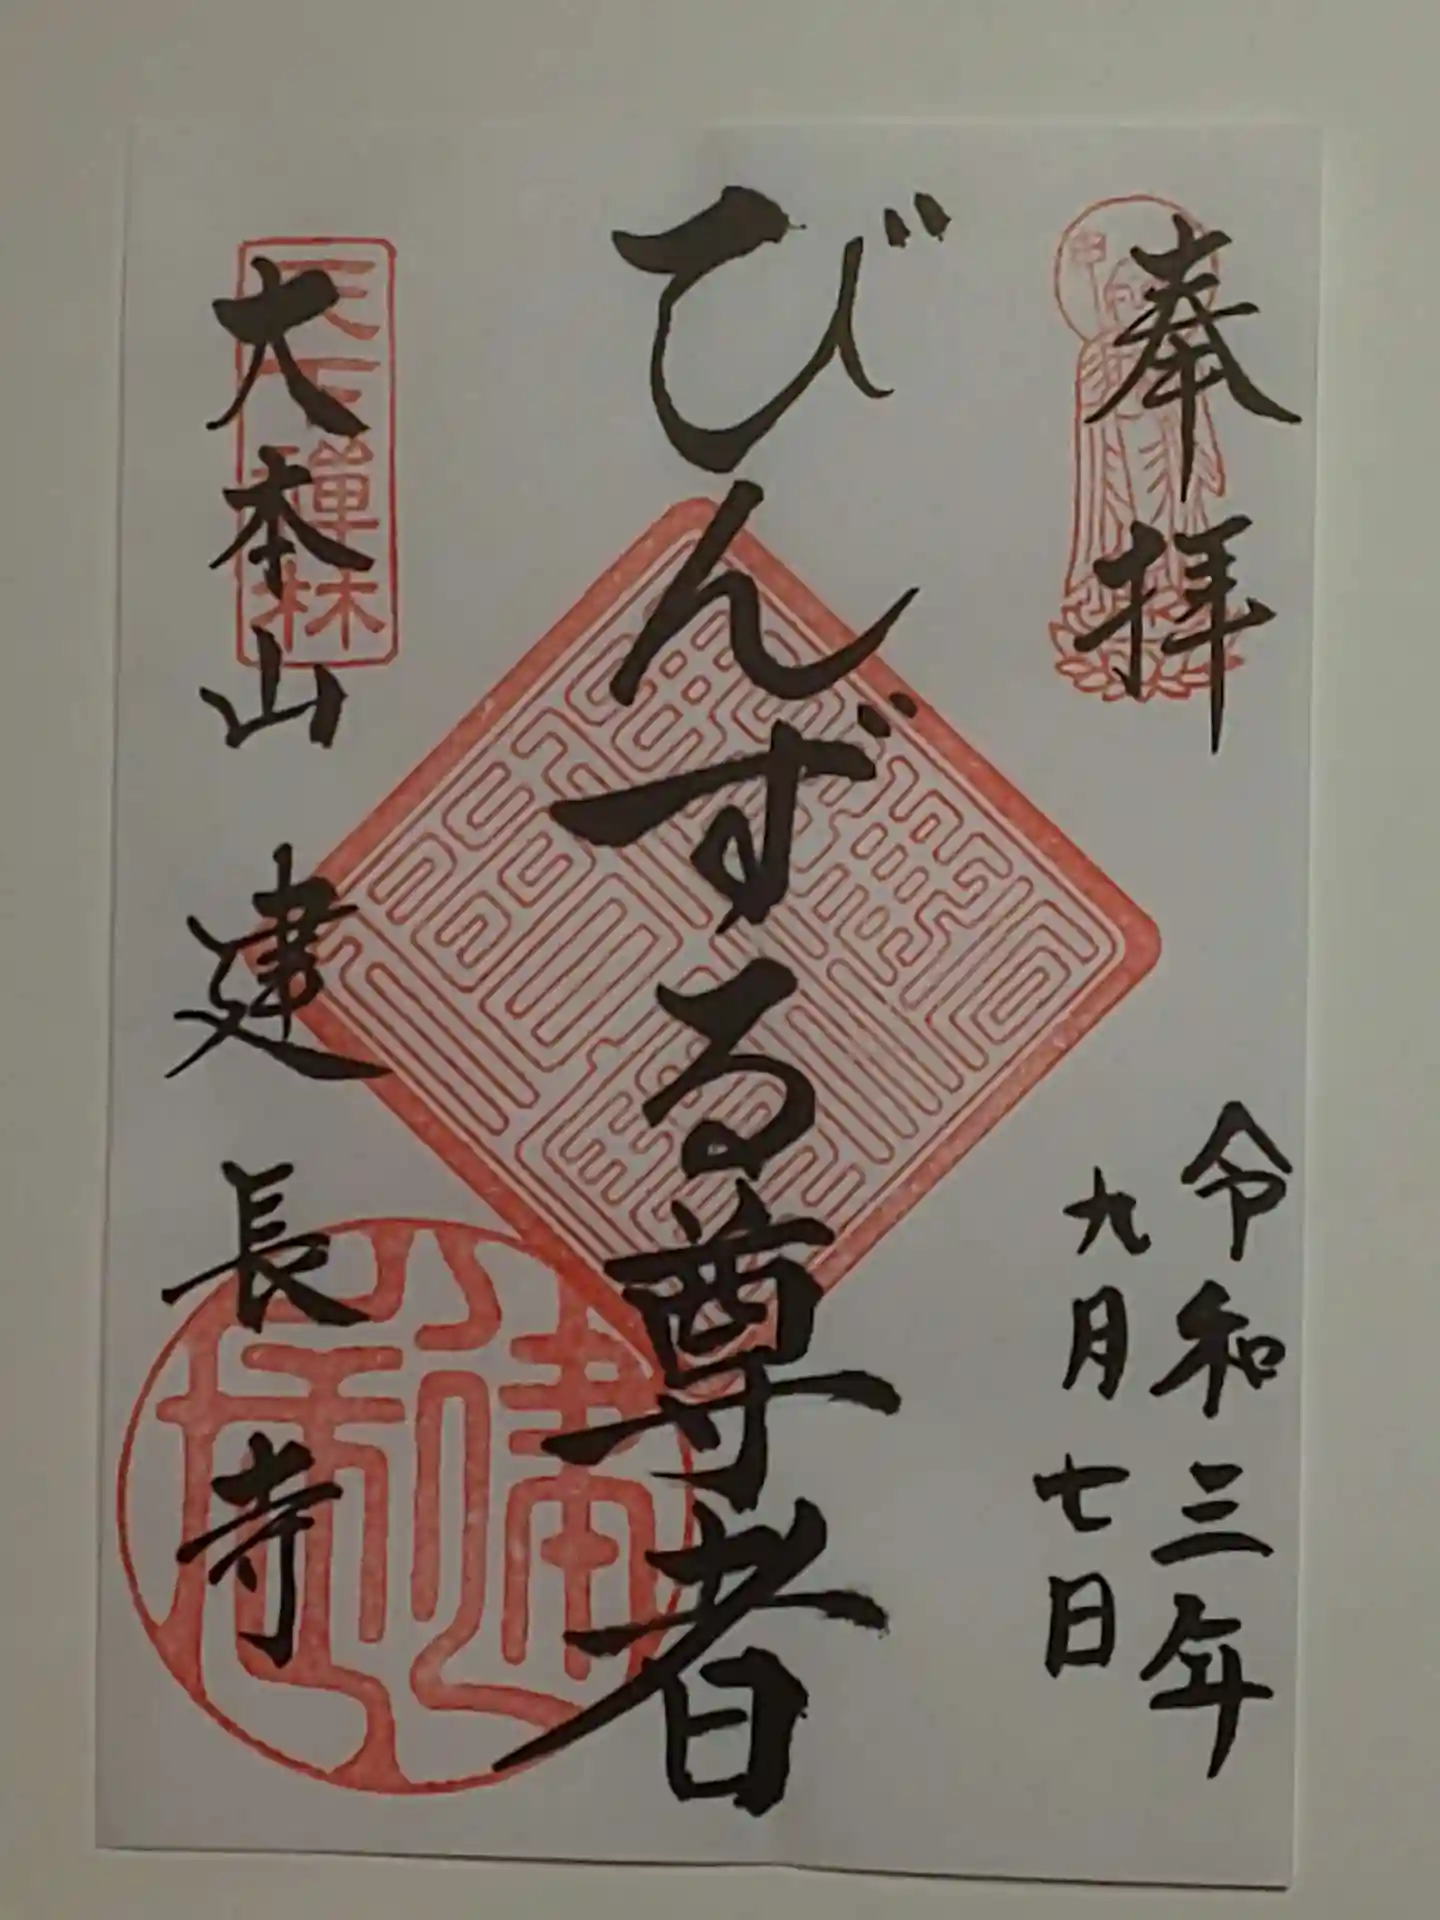 奉拝
令和三年
九月七日
びんずる尊者
天下禅林
大本山建長寺